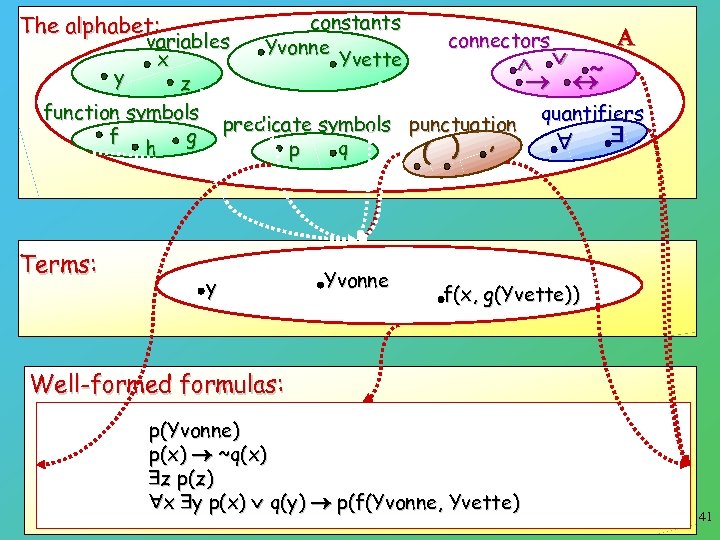 The alphabet:
variables
x
y
z
constants
Yvonne
Yvette
connectors
∧ ∨ ~
→ ↔
A
function symbols
f
h
g
predicate symbols
p
q
punctuation
( ) ,
quantifiers
∀ ∃
Terms:
y
Yvonne
f(x, g(Yvette))
Well-formed formulas:
p(Yvonne)
p(x) → ~q(x)
∃z p(z)
∀x ∃y p(x) ∨ q(y) → p(f(Yvonne, Yvette)
41